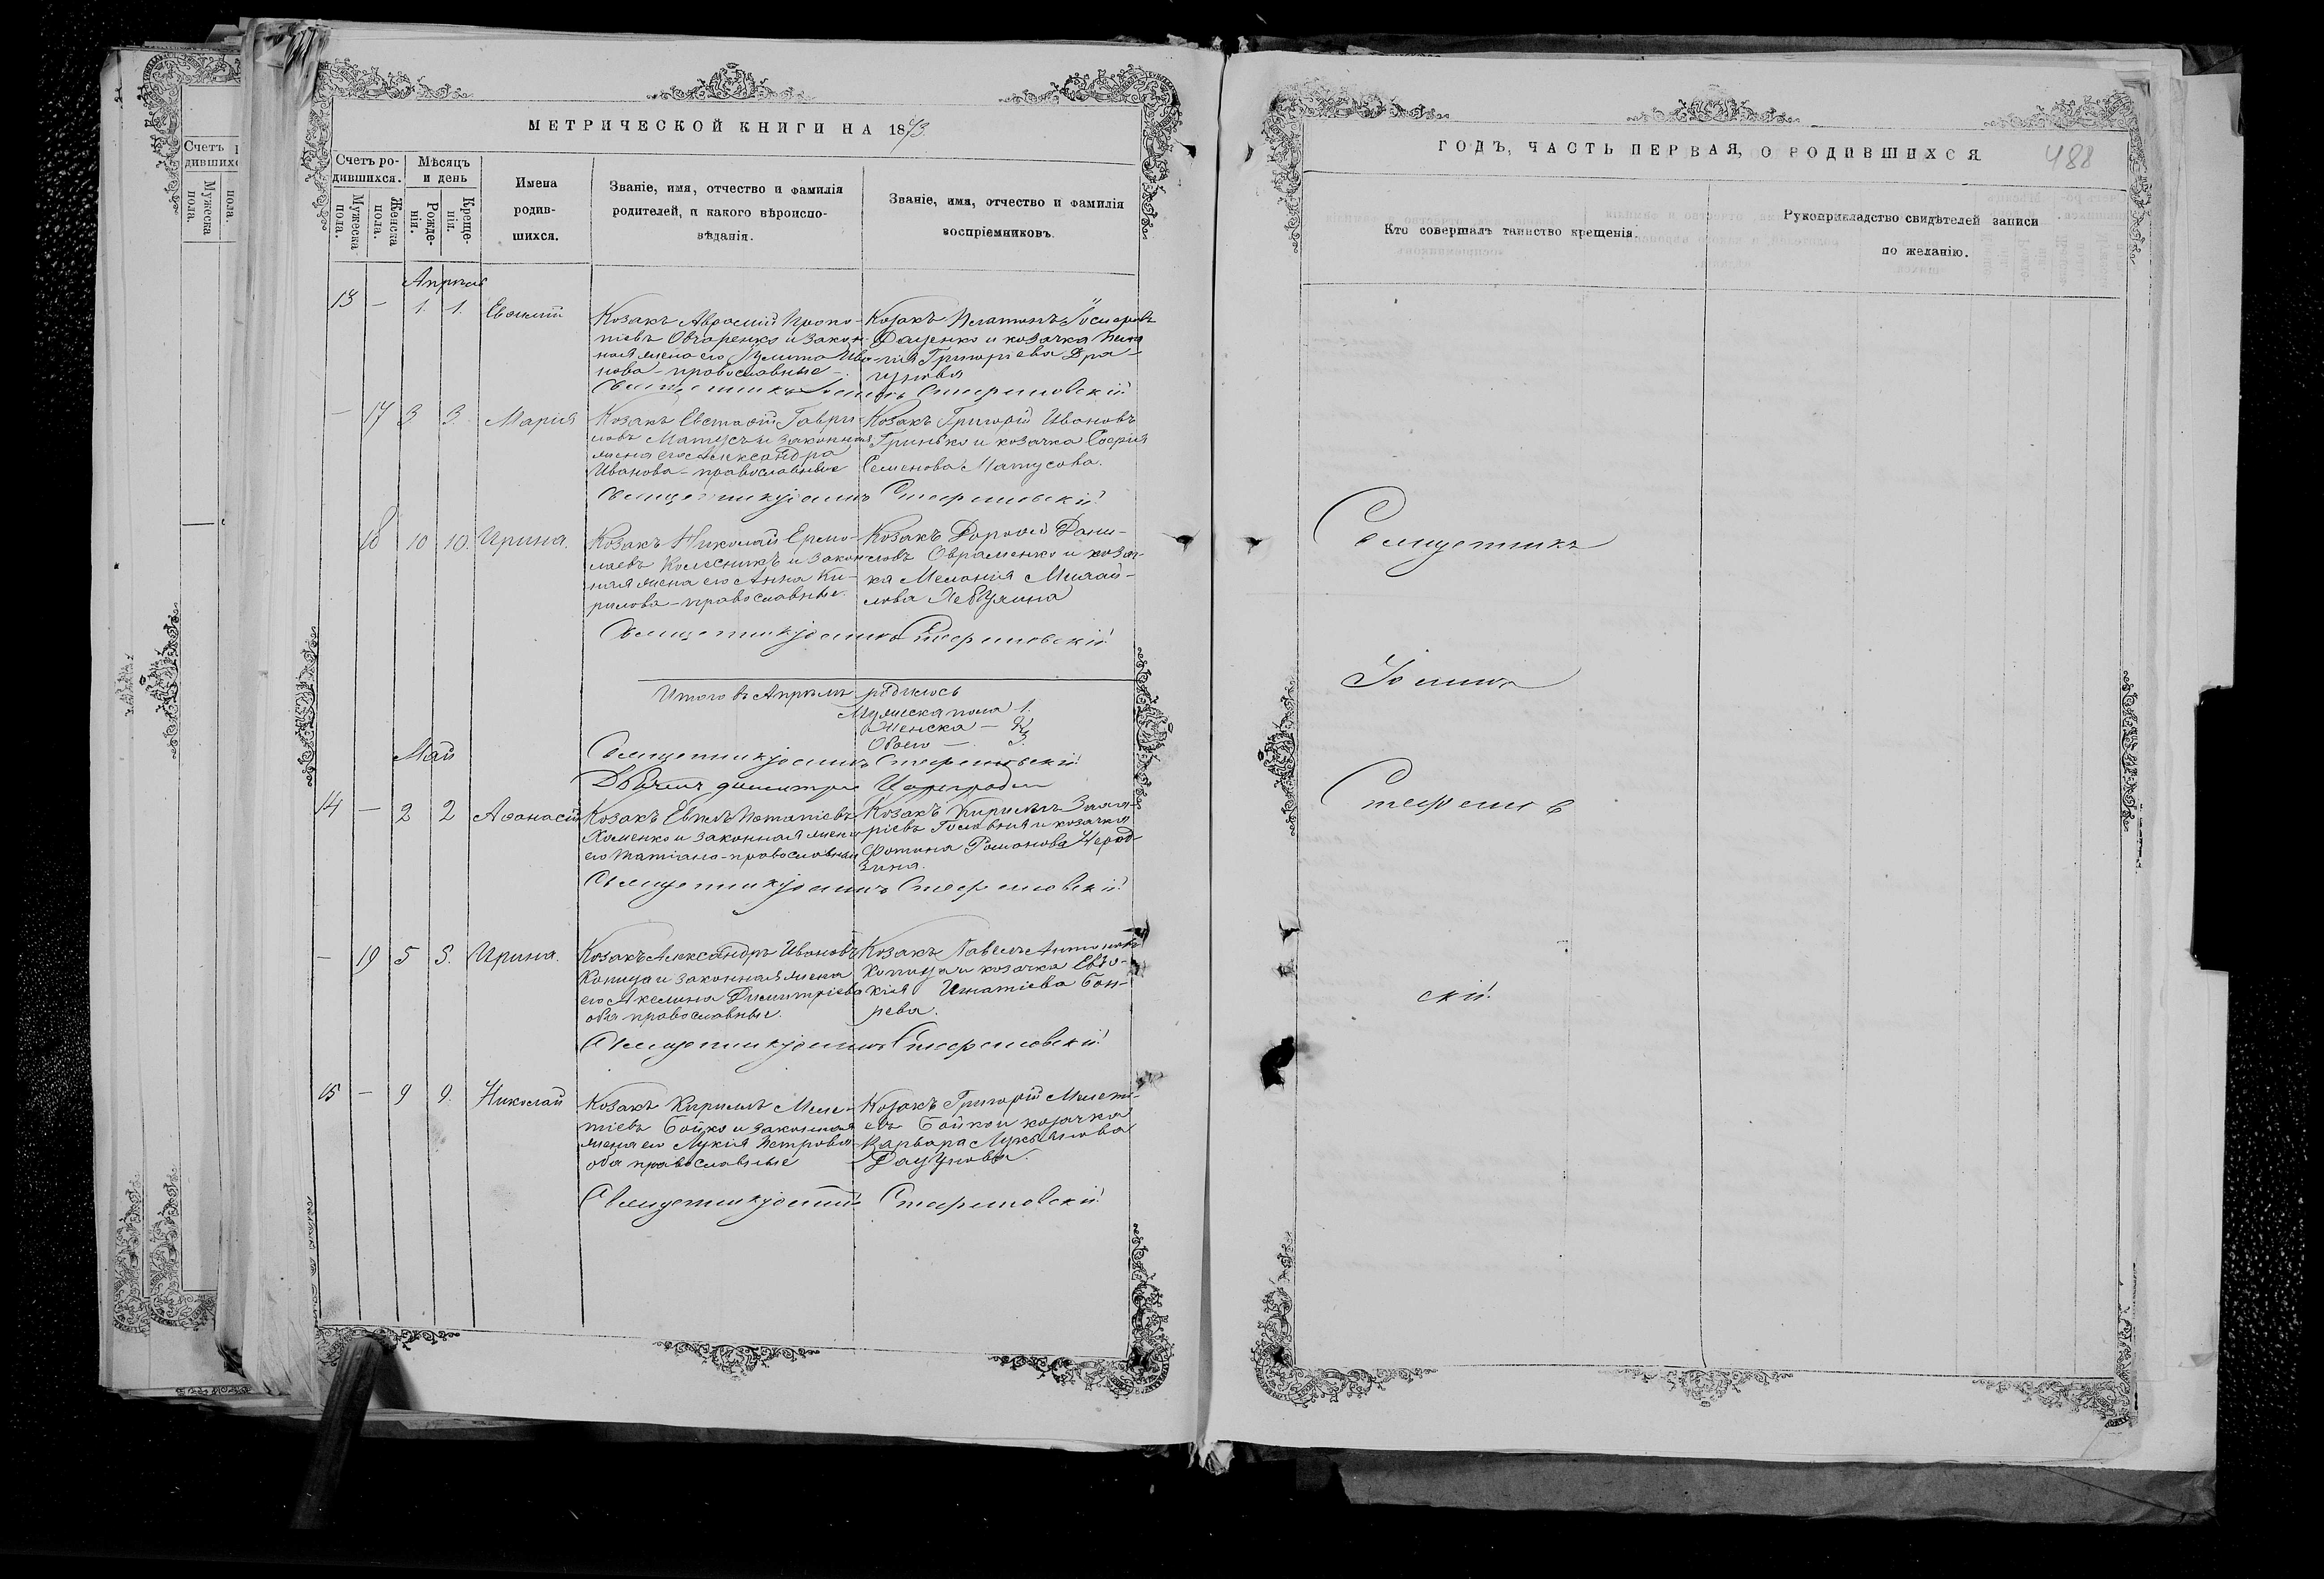 МЕТРИЧЕСКОЙ КНИГИ НА 1873
Счетъ ро-
дившихся.
Мужеска
пола.
Женска
пола.
Мѣсяцъ
и день
Рожде-
нія.
Креще-
нія.
Имена
родив-
шихся.
Званіе, имя, отчество и фамилія
родителей, и какого вѣроиспо-
вѣданія.
Званіе, имя, отчество и фамилія
воспріемниковъ.
Апрѣль
13 — 1. 1. Евѳимій
Козакъ Аврамій Проко-
піевъ Овчаренко и закон-
ная жена его Іулита Ива-
нова - православные -.
Козакъ Платонъ
Даценко и козачка Пела-
гія Григоріева Дра-
гунова
Священникъ Іоаннъ Стефановскій
— 17 3 3. Марія
Козакъ Евстафій Гаври-
ловъ Матусъ и законная
жена его Александра
Иванова - православные
Козакъ Григорій Ивановъ
Гринько и козачка Софія
Семенова Матусова.
Священникъ Іоаннъ Стефановскій
18 10 10. Ирина.
Козакъ Николай Ермо-
лаевъ Колесникъ и закон-
ная жена его Анна Ки-
рилова - православные.
Козакъ Дороѳей Дани-
ловъ Овраменко и козач-
ка Меланія Михай-
лова
Священникъ Іоаннъ Стефановскій
Итого въ Апрѣлѣ родилось
Мужеска пола 1.
Женска — 2
Обоего —. 3.
Священникъ Іоаннъ Стефановскій
Май
14 — 2 2 Аѳанасій
Козакъ Потапіевъ
Хоменко и законная жена
его Татіана - православная
Козакъ Кирилъ Заха-
ріевъ Головня и козачка
Фотина Романова
зина.
Священникъ Іоаннъ Стефановскій
— 19 5 5. Ирина.
Козакъ Александръ Ивановъ
Копица и законная жена
его Акелина Димитріева
оба православные.
Козакъ Павелъ Антоновъ
Копица и козачка Евдо-
кія Игнатіева Бон-
рева.
Священникъ Іоаннъ Стефановскій
15 — 9 9. Николай
Козакъ Кирилъ Меле-
тіевъ Бойко и законная
жена его Лукія Петрова
оба православные
Козакъ Григорій Мелеті-
евъ Бойко и козачка
Варвара Лукьянова
Дацунова.
Священникъ Іоаннъ Стефановскій
ГОДЪ, ЧАСТЬ ПЕРВАЯ, О РОДИВШИХСЯ
488
Кто совершалъ таинство крещенія.
Рукоприкладство свидѣтелей записи
по желанію.
Священникъ
Іоаннъ
Стефанов
скій.
Счетъ
дивших
Мужеска
пола.
пола.